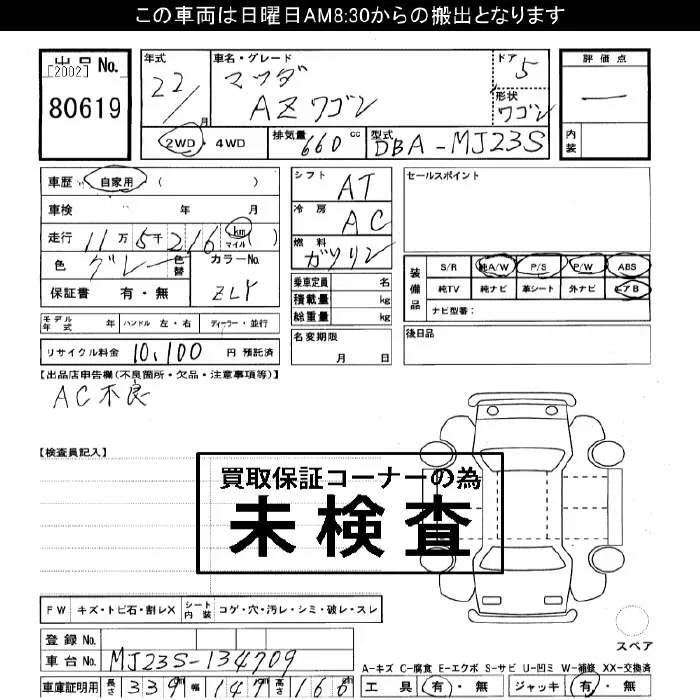 この車両は日曜日AM8:30からの搬出となります
出品 No.
[2002]
80619
年式 22/ 月
車名・グレード マツダ AZワゴン
ドア 5
形状 ワゴン
2WD・4WD 排気量 660 cc 型式 DBA-MJ23S
評価点 一
内装
車歴 自家用 ( )
車検 年 月
走行 11万5千216 km マイル ( )
色 グレー 色替 カラーNo. ZLY
保証書 有・無
シフト AT
冷房 AC
燃料 ガソリン
乗車定員 名
積載量 kg
総重量 kg
セールスポイント
装備品 S/R 純A/W P/S P/W ABS
純TV 純ナビ 革シート 外ナビ エアB
ナビ型番:
モデル年式 年 ハンドル 左・右 ディーラー・並行
名変期限 月 日
後日品
リサイクル料金 10,100 円 預託済
【出品店申告欄(不良箇所・欠品・注意事項等)】
AC不良
【検査員記入】
買取保証コーナーの為
未検査
FW キズ・トビ石・割レX シート内装 コゲ・穴・汚レ・シミ・破レ・スレ
登録No.
車台No. MJ23S-134709
スペア
A-キズ C-腐食 E-エクボ S-サビ U-凹ミ W-補修 XX-交換済
車庫証明用 長さ 339 cm 幅 147 cm 高さ 166 cm
工具 有・無 ジャッキ 有・無